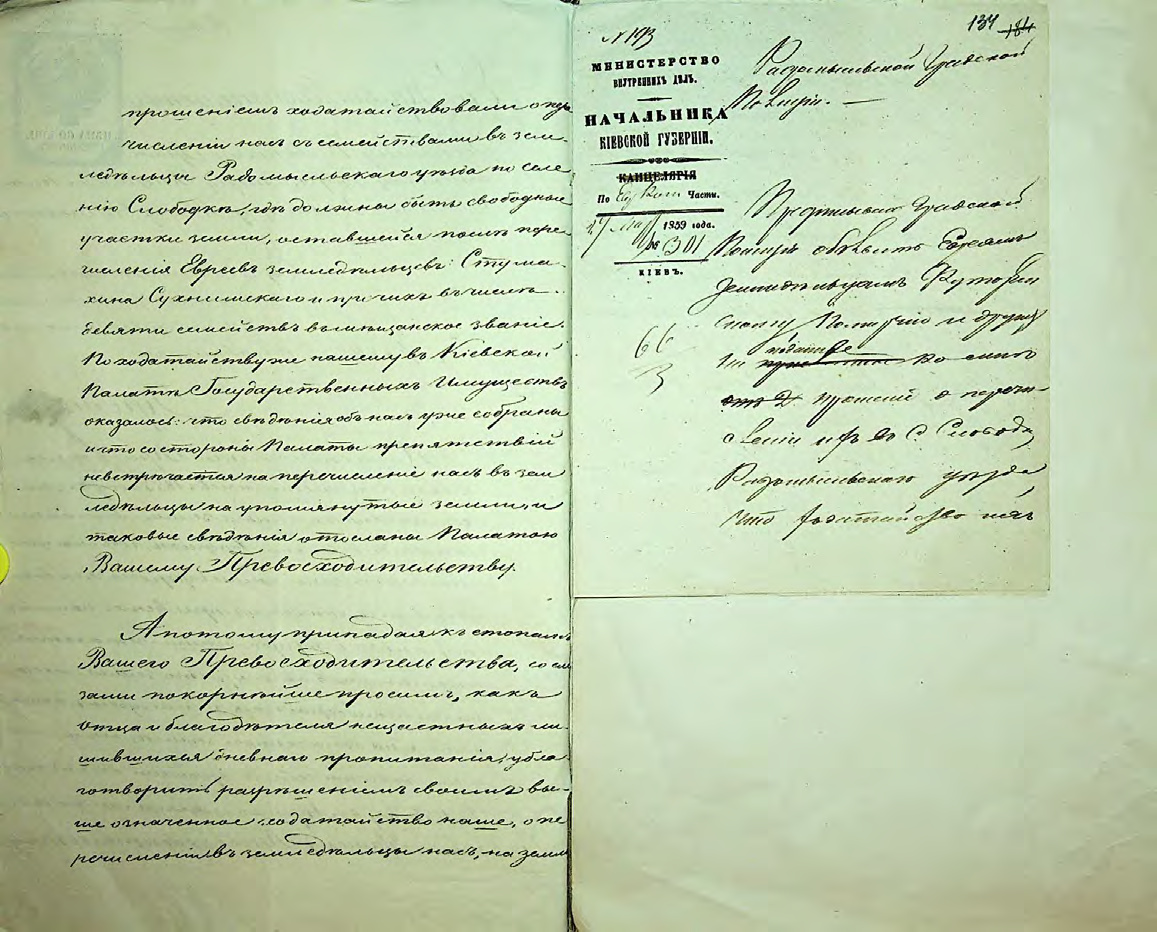 прошеніемъ ходатайствовали о пере
численіи насъ съ семействами въ зем-
ледѣльцы Радомысльскаго уѣзда по селе
нію Слободкѣ, гдѣ должны быть свободные
участки земли, оставшейся послѣ пере
численія Евреевъ земледѣльцевъ: Стума-
хина Сухнимскаго и прочихъ въ числѣ
девяти семействъ въ мѣщанское званіе.
По ходатайству же нашему въ Кіевской
Палатѣ Государственныхъ Имуществъ
оказалось: что свѣдѣнія объ насъ уже собраны
и что со стороны Палаты препятствій
невстрѣчается на перечисленіе насъ въ зем
ледѣльцы на упомянутые земли, и
таковые свѣдѣнія отосланы Палатою
Вашему Превосходительству.
А потому припадая къ стопамъ
Вашего Превосходительства, со сле
зами покорнѣйше просимъ, какъ
отца и благодѣтеля нещастныхъ ли
шившихся дневнаго пропитанія, убла
готворить разрѣшеніемъ своимъ вы-
ше означенное ходатайство наше, о пе
речисленіи въ земледѣльцы насъ, на земли
N 193
134 184
МИНИСТЕРСТВО
ВНУТРЕННИХЪ ДѢЛЪ.
НАЧАЛЬНИКА
КІЕВСКОЙ ГУБЕРНІИ.
КАНЦЕЛЯРІЯ
По Части.
27 Мая 1859 года.
№ 301
КІЕВЪ.
66
3
Радомысльской Градской
Полиціи.
Предписываю Градской
Полиціи объявить Евреямъ
земледѣльцамъ
и другимъ
поданное
ко мнѣ
прошеній о перечи-
сленіи ихъ въ С. Слободку
Радомысльскаго уѣзда,
что ходатайство ихъ